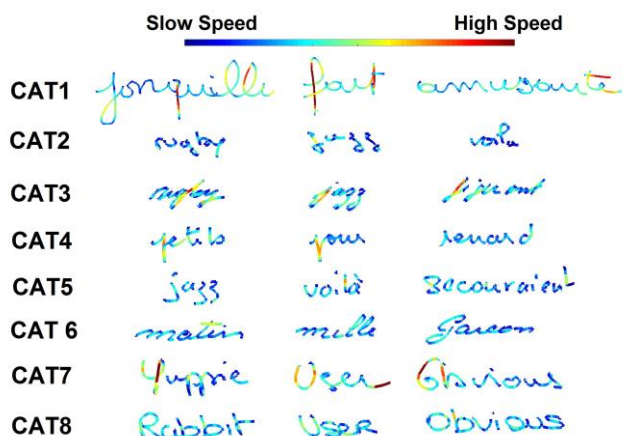 Slow Speed High Speed
CAT1 jonquille faut amusante
CAT2 rugby jazz voila
CAT3 rugby jazz
CAT4 petits pour renard
CAT5 jazz voilà secouraient
CAT 6 matin mille Garcon
CAT7 Yuppie User Obvious
CAT8 Rabbit User Obvious